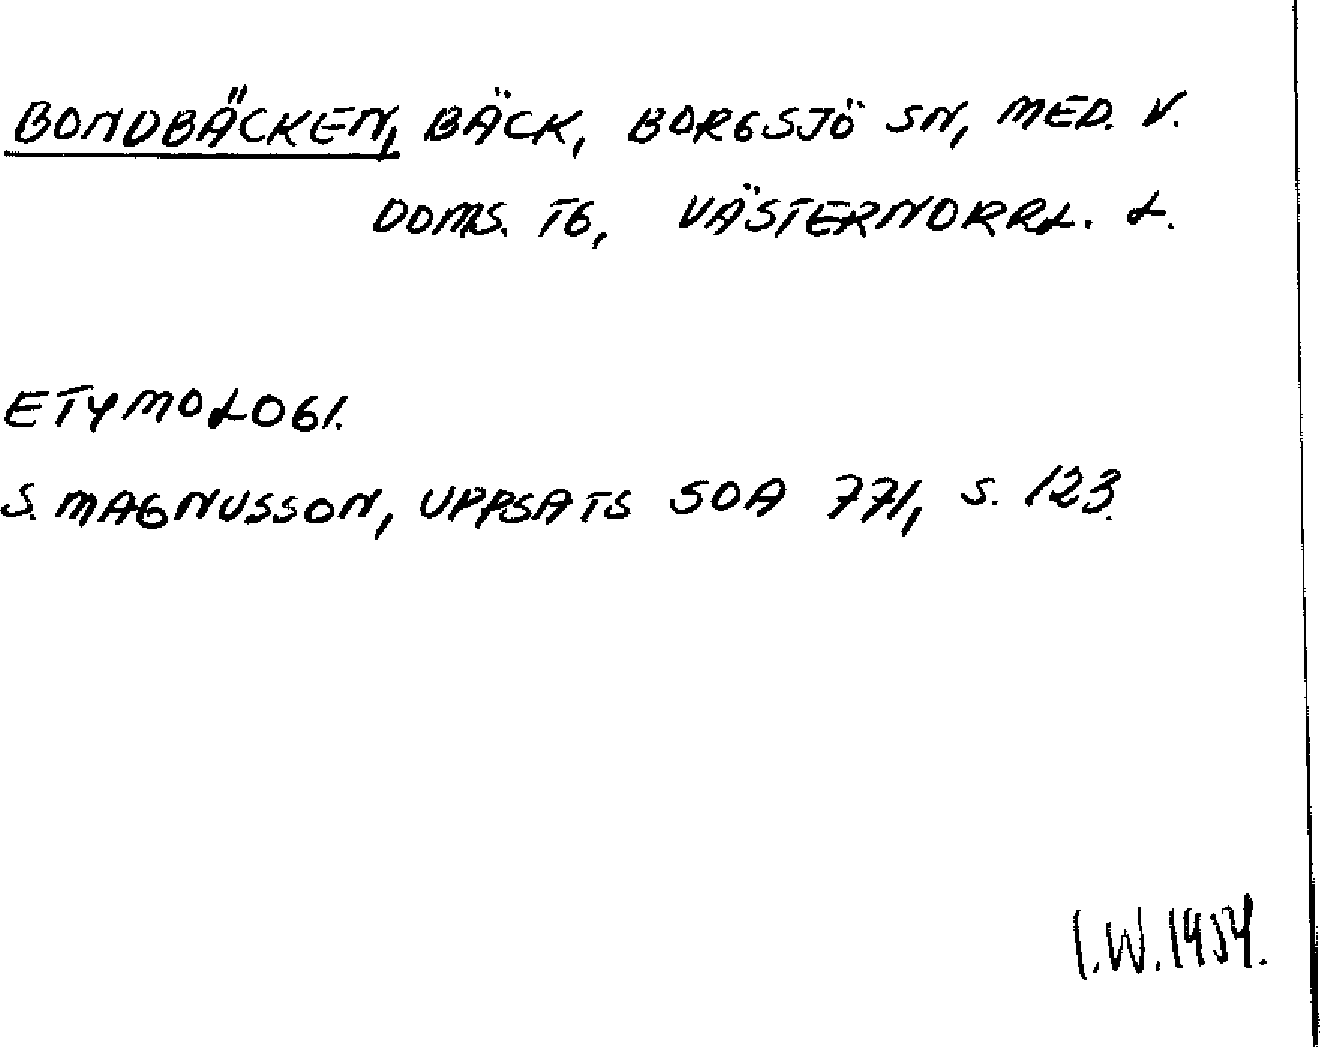 BONDBÄCKEN, BÄCK, BORGSJÖ SN, MED. V.
DOMS. TG, VÄSTERNORRL. L.
ETYMOLOGI.
S. MAGNUSSON, UPPSATS SOA 771, S. 123.
I.W. 1954.